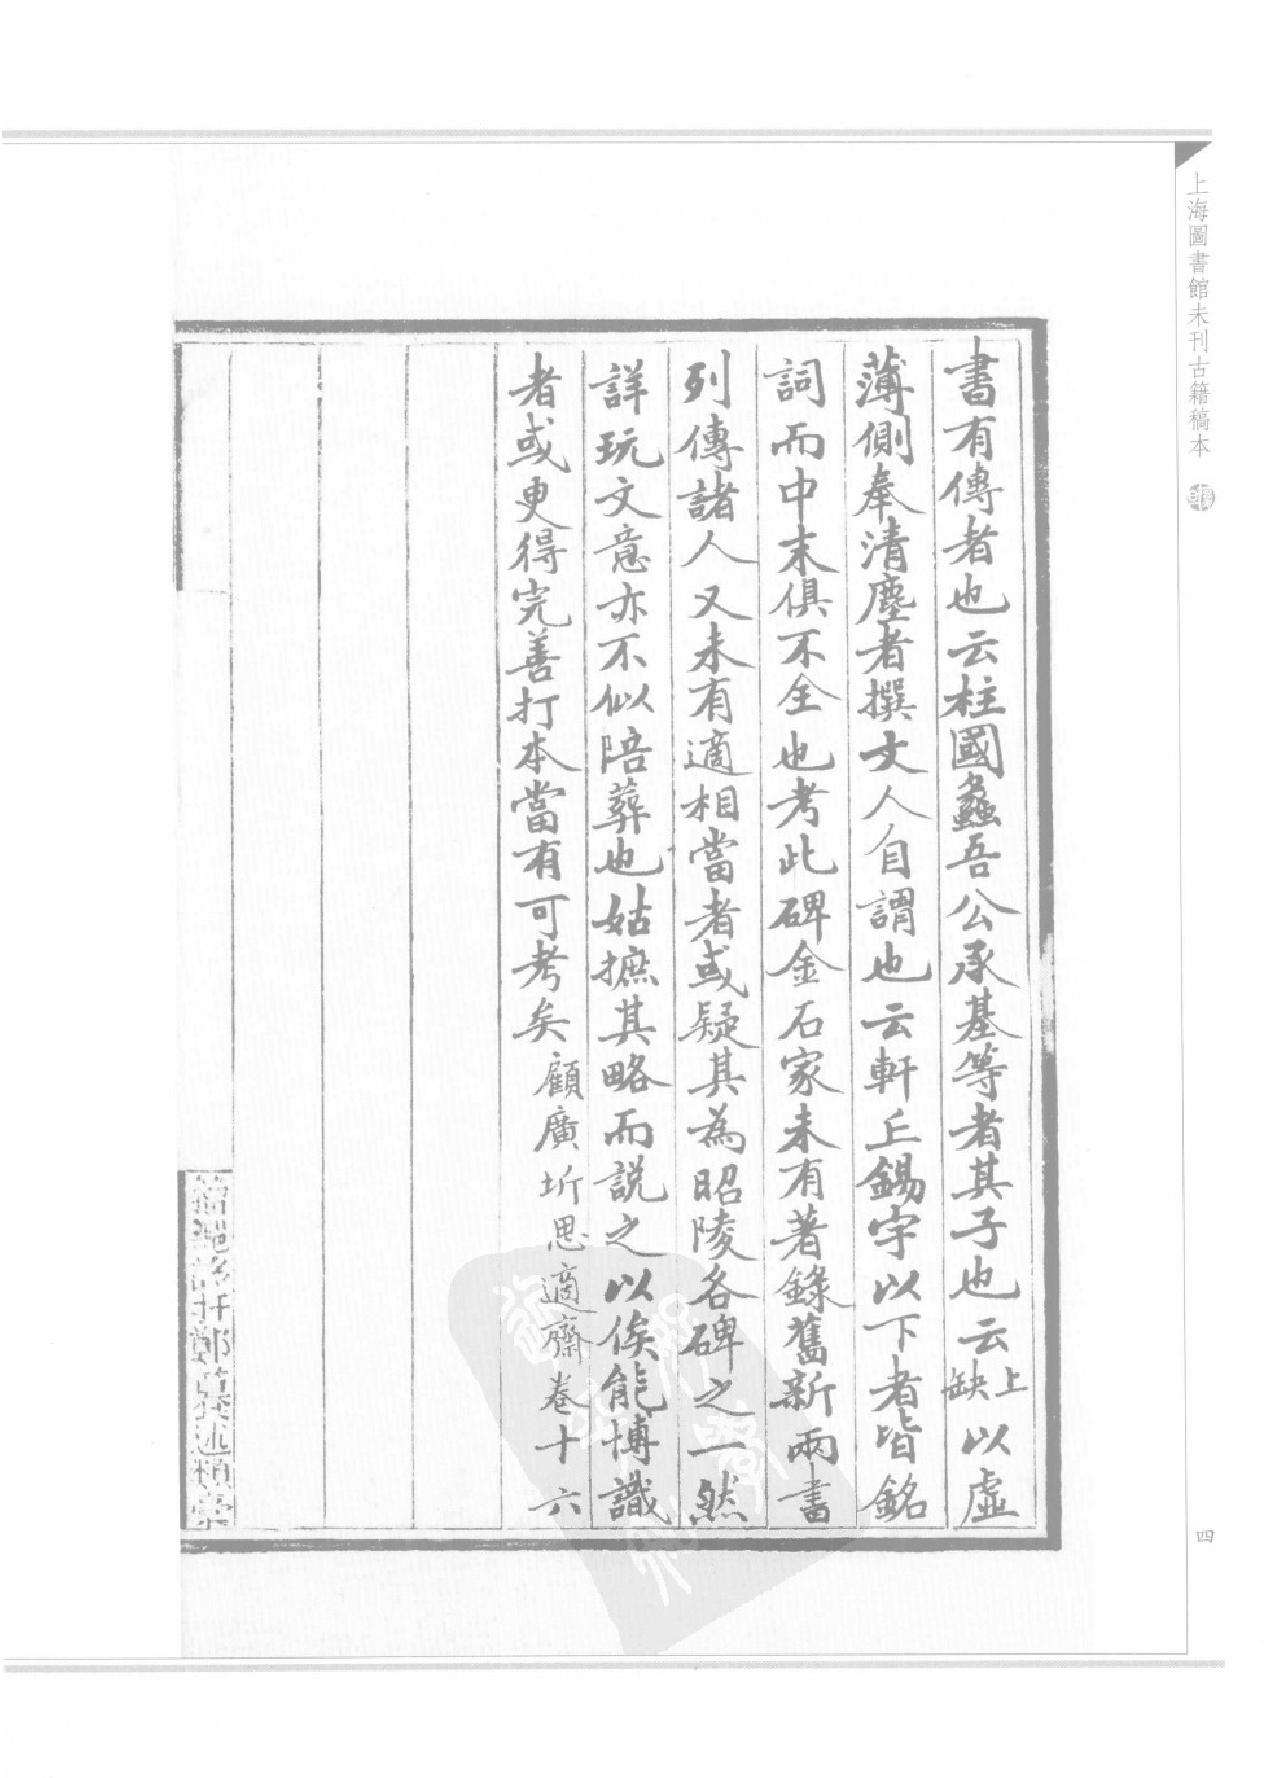 上海圖書館未刊古籍稿本
四
書有傳者也云柱國蠡吾公承基等者其子也云上缺以虛
薄側奉清塵者撰文人自謂也云軒丘錫字以下者皆銘
詞而中末俱不全也考此碑金石家未有著錄舊新兩書
列傳諸人又未有適相當者或疑其為昭陵各碑之一然
詳玩文意亦不似陪葬也姑摭其略而說之以俟能博識
者或更得完善打本當有可考矣顧廣圻思適齋卷十六